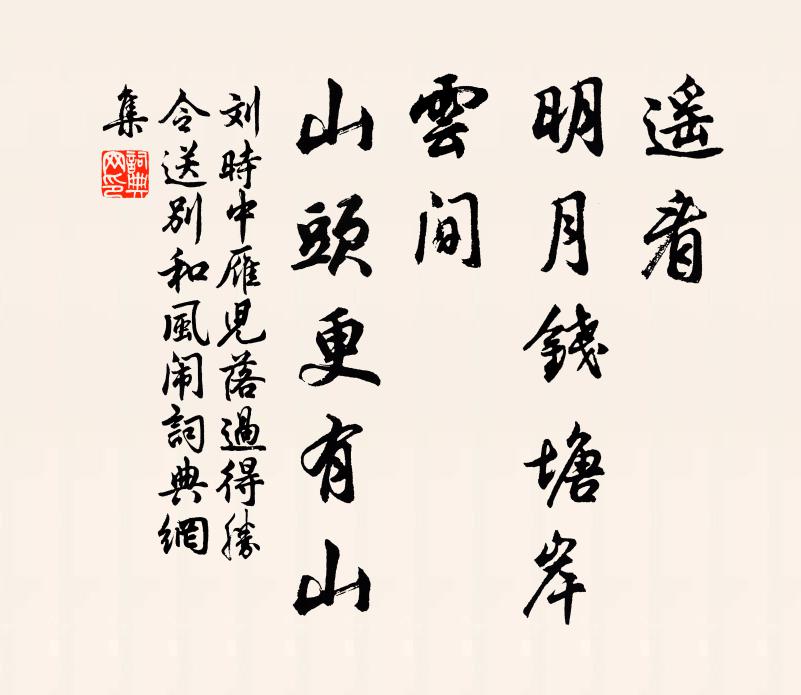 遥看
明月錢塘岸
雲間
山頭更有山
刘時中雁児落過得勝
令送别和風闹詞典網
集
詞典
网印